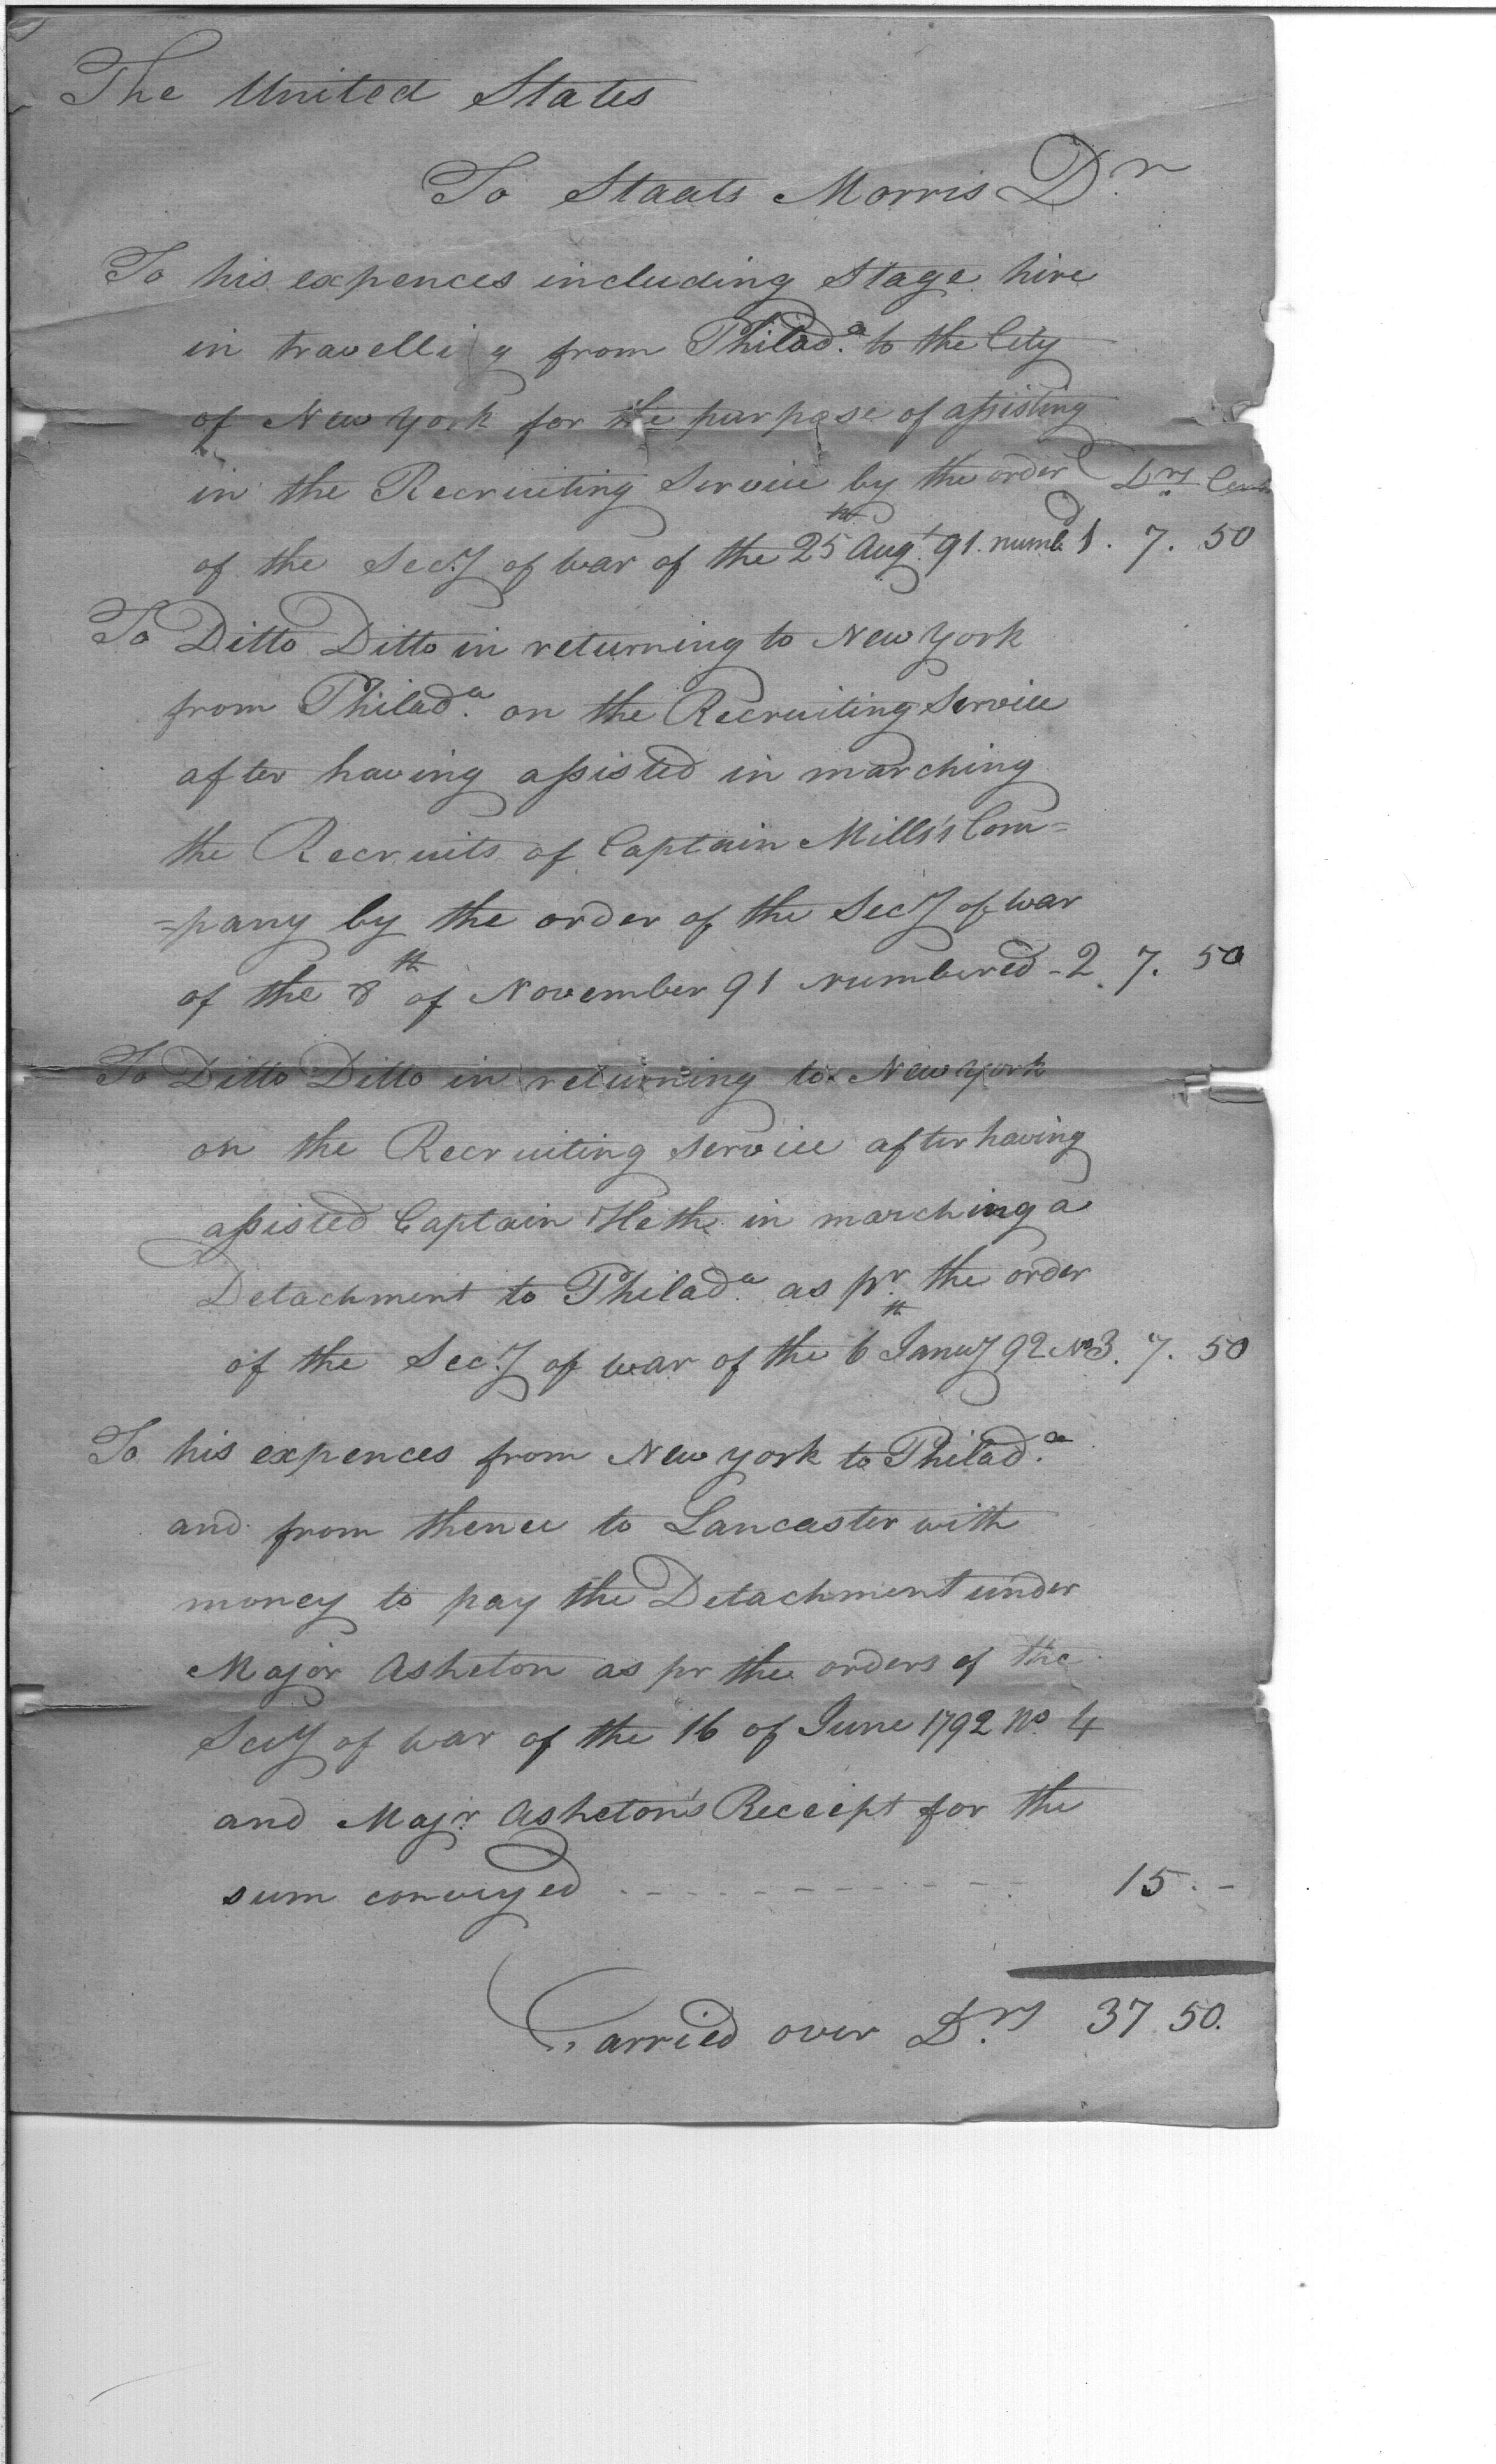 The United States
To Staats Morris Dr.
To his expences including Stage hire
in travelli g from Philada. to the City
of New York for the purpose of assisting
in the Recruiting Service by the order Drs. Cents
of the Secy. of war of the 25th Augt. 91. numbd 1. 7. 50
To Ditto Ditto in returning to New York
from Philada. on the Recruiting Service
after having assisted in marching
the Recruits of Captain Mills's Com=
=pany by the order of the Secy of war
of the 8th of November 91 numbered - 2. 7. 50
To Ditto Ditto in returning to New York
on the Recruiting Service after having
assisted Captain Heth in marching a
Detachment to Philada. as pr. the order
of the Secy. of war of the 6th Janury 92 No 3. 7. 50
To his expences from New York to Philada.
and from thence to Lancaster with
money to pay the Detachment under
Major Asheton as pr the orders of the
Secy of war of the 16 of June 1792 No. 4
and Majr. Asheton's Receipt for the
sum conveyed - - - - - - - - - - 15. -
Carried over Drs. 37 50.